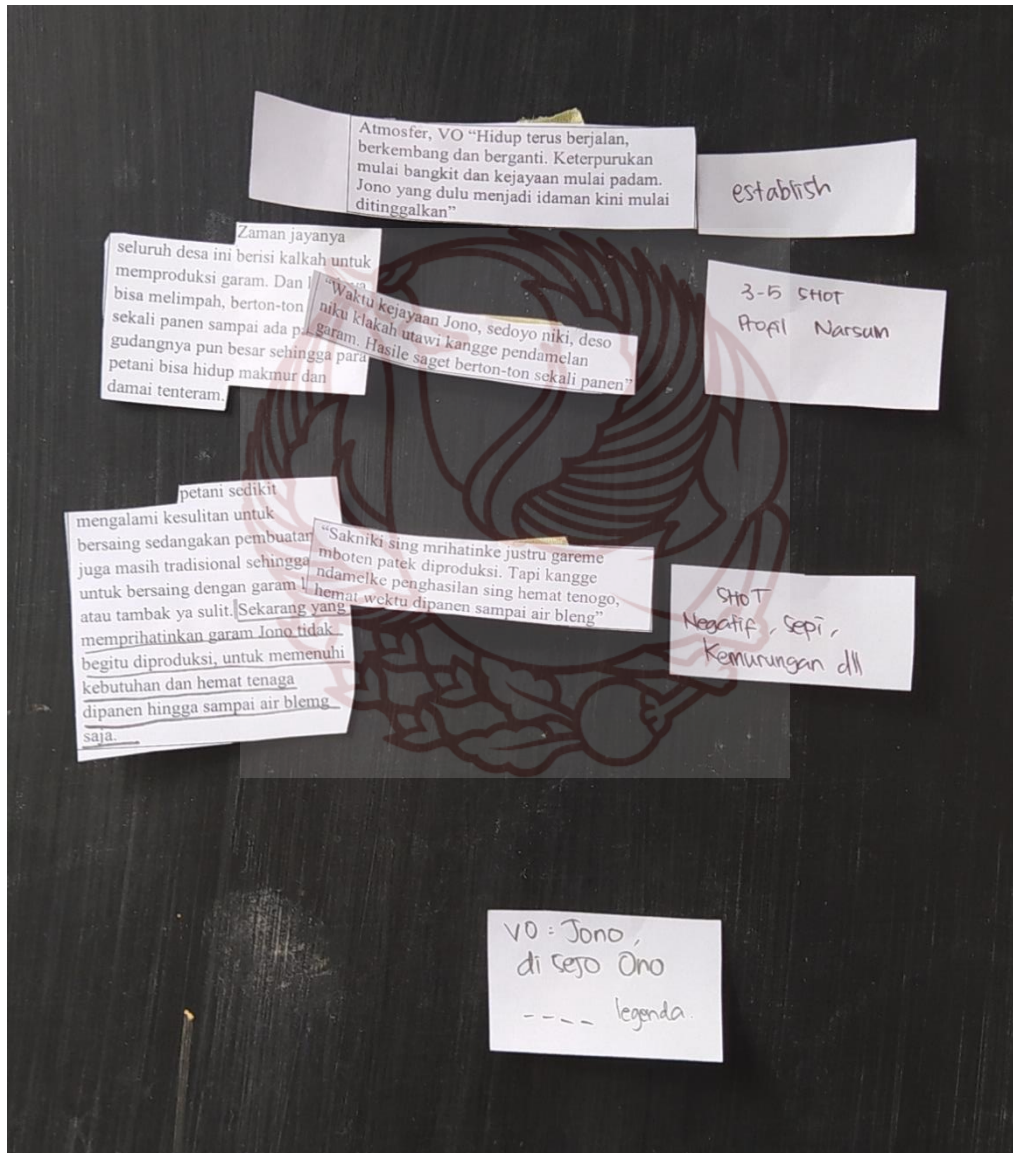 Atmosfer, VO “Hidup terus berjalan,
berkembang dan berganti. Keterpurukan
mulai bangkit dan kejayaan mulai padam.
Jono yang dulu menjadi idaman kini mulai
ditinggalkan”
establish
Zaman jayanya
seluruh desa ini berisi kalkah untuk
memproduksi garam. Dan
bisa melimpah, berton-ton
sekali panen sampai ada
gudangnya pun besar sehingga para
petani bisa hidup makmur dan
damai tenteram.
“Waktu kejayaan Jono, sedoyo niki, deso
niku klakah utawi kangge pendamelan
garam. Hasile saget berton-ton sekali panen”
3-5 SHOT
Profil Narsum
petani sedikit
mengalami kesulitan untuk
bersaing sedangakan pembuatan
juga masih tradisional sehingga
untuk bersaing dengan garam
atau tambak ya sulit. Sekarang yang
memprihatinkan garam Jono tidak
begitu diproduksi, untuk memenuhi
kebutuhan dan hemat tenaga
dipanen hingga sampai air blemg
saja.
“Sakniki sing mrihatinke justru gareme
mboten patek diproduksi. Tapi kangge
ndamelke penghasilan sing hemat tenogo,
hemat wektu dipanen sampai air bleng”
SHOT
Negatif, sepi,
Kemurungan dll
VO : Jono,
di sejo Ono
---- legenda.